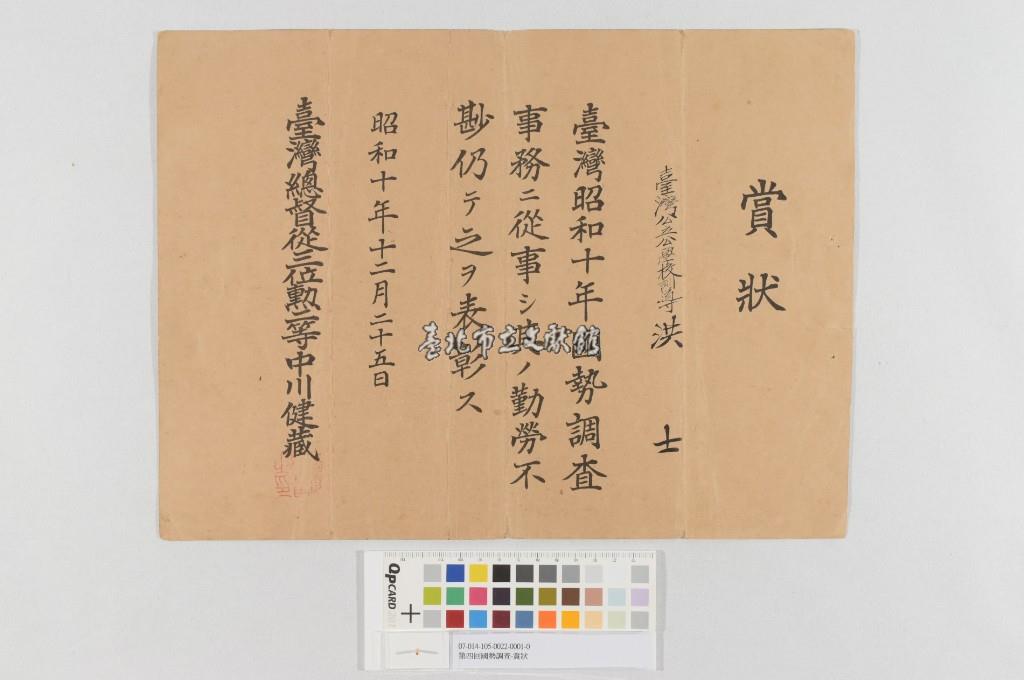 賞狀
臺灣公立公學校訓導 洪 士
臺灣昭和十年國勢調査
事務ニ從事シ ノ勤勞不
尠仍テ之ヲ表彰ス
昭和十年十二月二十五日
臺灣總督從三位勳二等中川健藏
臺北市立文獻館
QPCARD
07-014-105-0022-0001-0
第四回國勢調查-賞狀